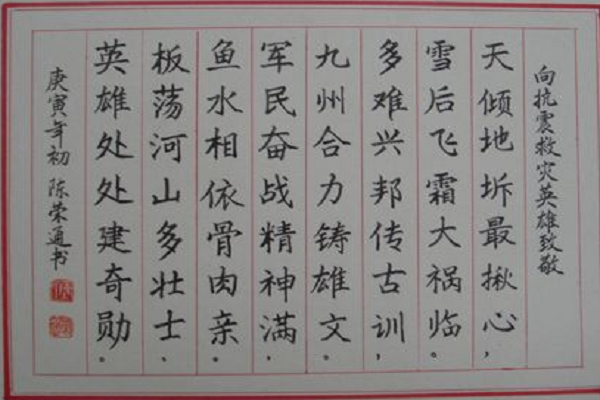 向抗震救灾英雄致敬
天倾地坼最揪心，
雪后飞霜大祸临。
多难兴邦传古训，
九州合力铸雄文。
军民奋战精神满，
鱼水相依骨肉亲。
板荡河山多壮士、
英雄处处建奇勋。
庚寅年初 陈荣通书